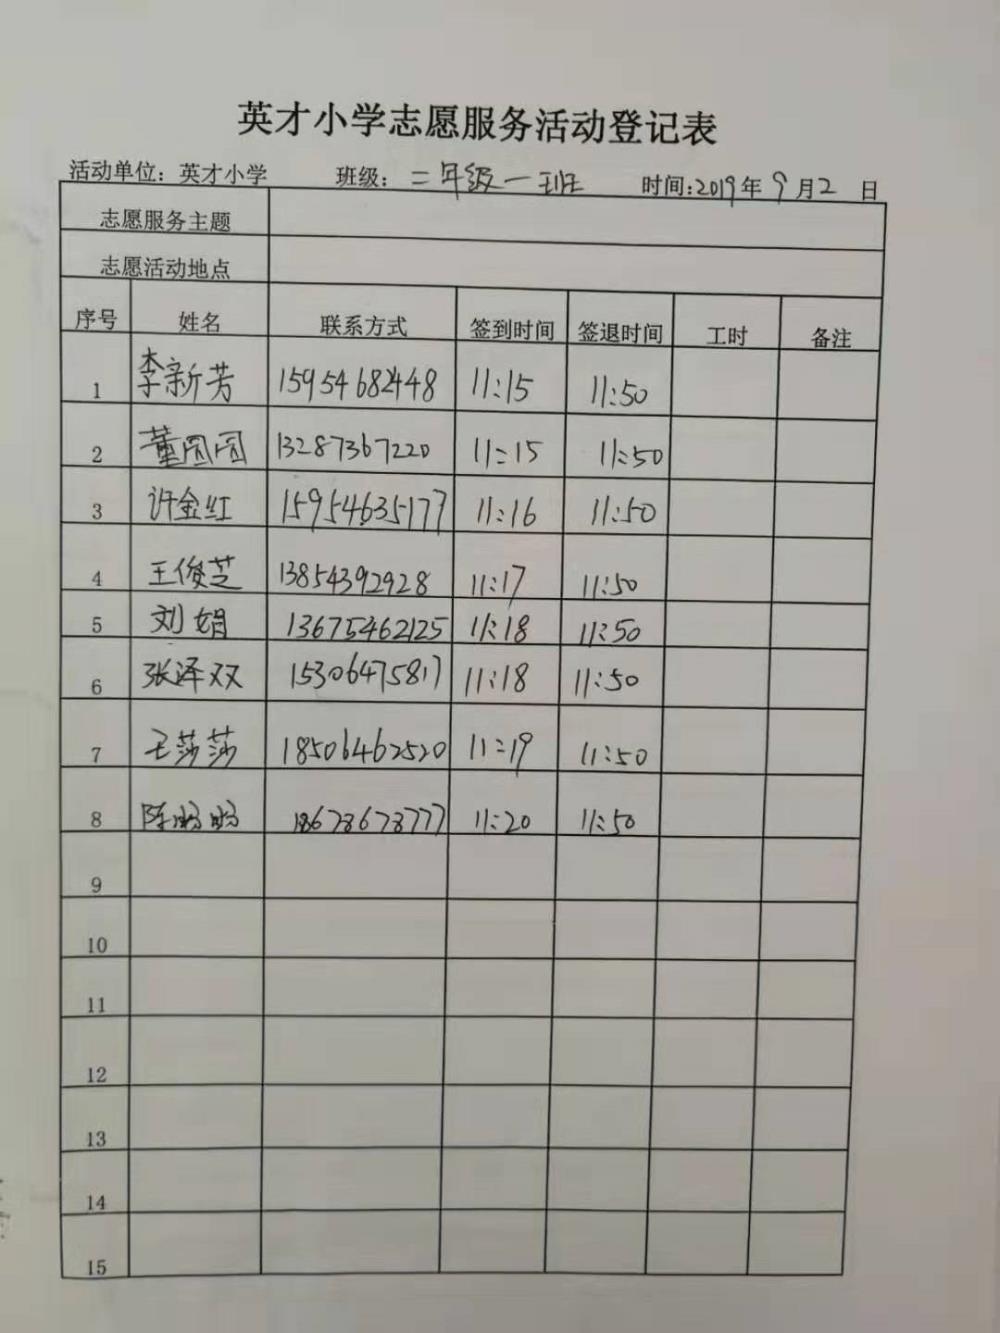 英才小学志愿服务活动登记表
活动单位：英才小学 班级：二年级一班 时间:2019年9月2日
志愿服务主题
志愿活动地点
序号 姓名 联系方式 签到时间 签退时间 工时 备注
1 李新芳 15954682448 11:15 11:50
2 董圆圆 13287367220 11:15 11:50
3 许金红 15954635177 11:16 11:50
4 王俊芝 13854392928 11:17 11:50
5 刘娟 13675462125 11:18 11:50
6 张泽双 15306475817 11:18 11:50
7 王莎莎 18506462520 11:19 11:50
8 陈 18678678777 11:20 11:50
9
10
11
12
13
14
15